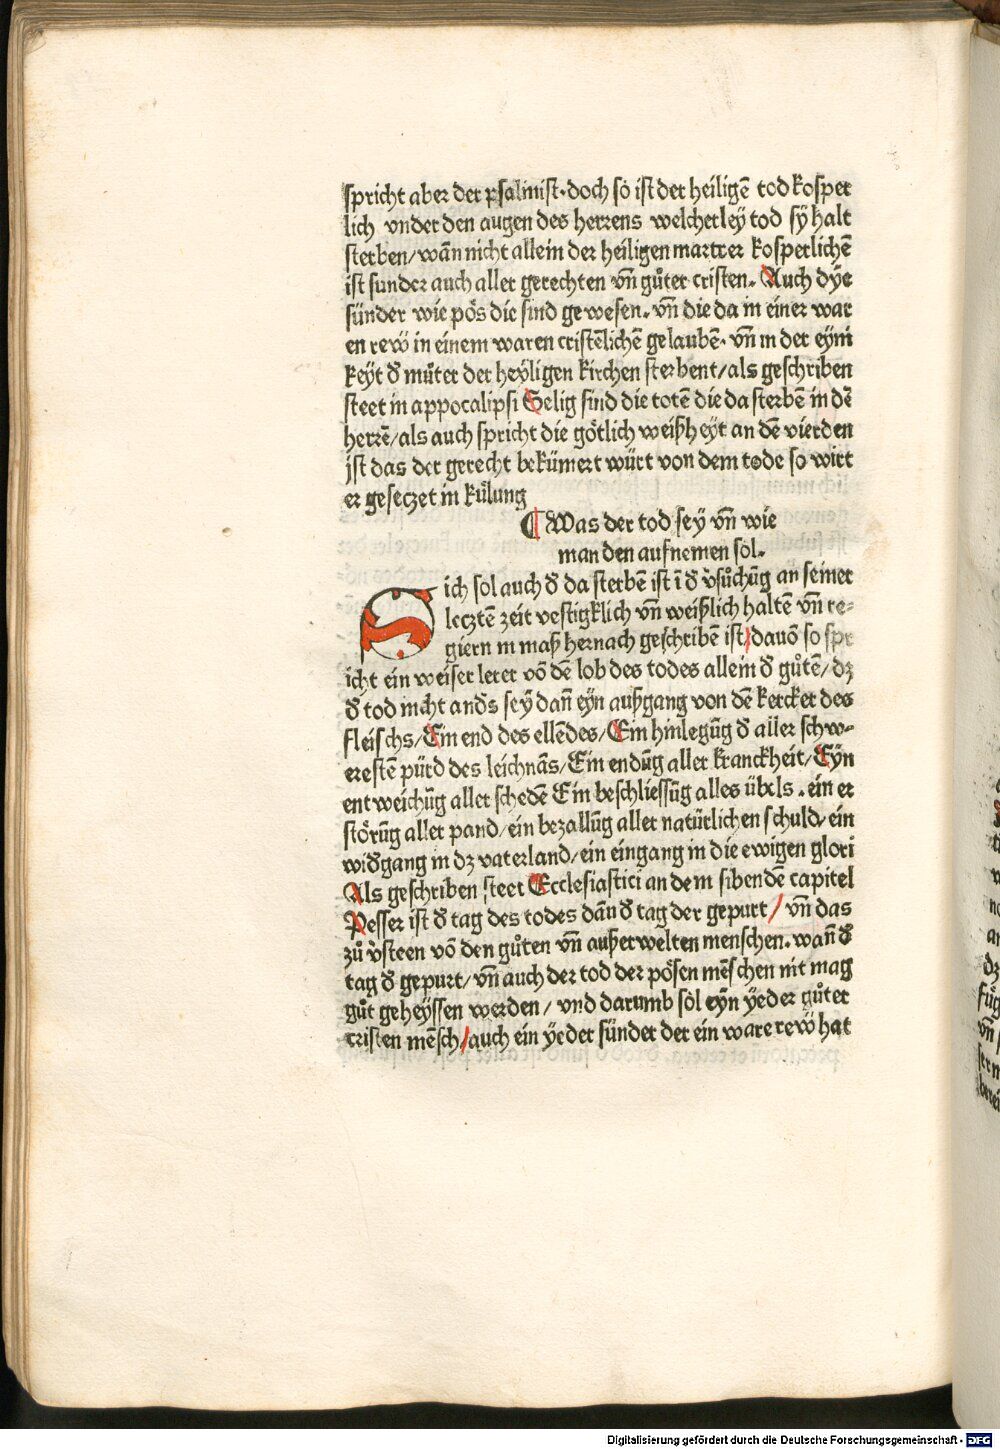 spricht aber der psalmist·doch so ist der heiligē tod kosper
lich vnder den augen des herrens welcherley tod sÿ halt
sterben/wān nicht allein der heiligen martrer kosperlichē
ist sunder auch aller gerechten vn̄ gůter cristen. Auch dÿe
sünder wie pös die sind gewesen. vn̄ die da in einer war
en rew̎ in einem waren cristēlichē gelaubē· vn̄ in der eÿni
keÿt đ můter der heÿligen kirchen sterbent/als geschriben
steet in appocalipsi Selig sind die totē die da sterbē in dē
herrē/als auch spricht die götlich weißheyt an dē vierden
ist das der gerecht bekümert würt von dem tode so wirt
er geseczet in kůlung
¶ Was der tod seÿ vn̄ wie
man den aufnemen sol.
Sich sol auch đ da sterbē ist ī đ v̓sůchūg an seiner
lecztē zeit vestigklich vn̄ weißlich haltē vn̄ re⸗
giern in maß hernach geschribē ist/dauō so spr
icht ein weiser lerer vō dē lob des todes allein đ gůtē/ dz
đ tod nicht and̓s seÿ dan̄ eÿn außgang von dē kercker des
fleischs/Ein end des ellēdes/Ein hinlegūg đ aller schw⸗
erestē pürd des leichnās/Ein endūg aller kranckheit/Eÿn
entweichūg aller schedē Ein beschliessūg alles übels . ein er
störūg aller pand/ein bezallūg aller natürlichen schuld/ein
widgang in dz vaterland/ein eingang in die ewigen glori
Als geschriben steet Ecclesiastici an dem sibendē capitel
Pesser ist đ tag des todes dān đ tag der gepurt/ vn̄ das
zů v̓steen vō den gůten vn̄ außerwelten menschen. wan̄ đ
tag đ gepurt/ vn̄ auch der tod der pösen mēschen nit mag
gůt geheÿssen werden/ vnd darumb sol eÿn ÿeder gůter
cristen mēsch/auch ein ÿeder sünder der ein ware rew̎ hat
Digitalisierung gefördert durch die Deutsche Forschungsgemeinschaft - DFG